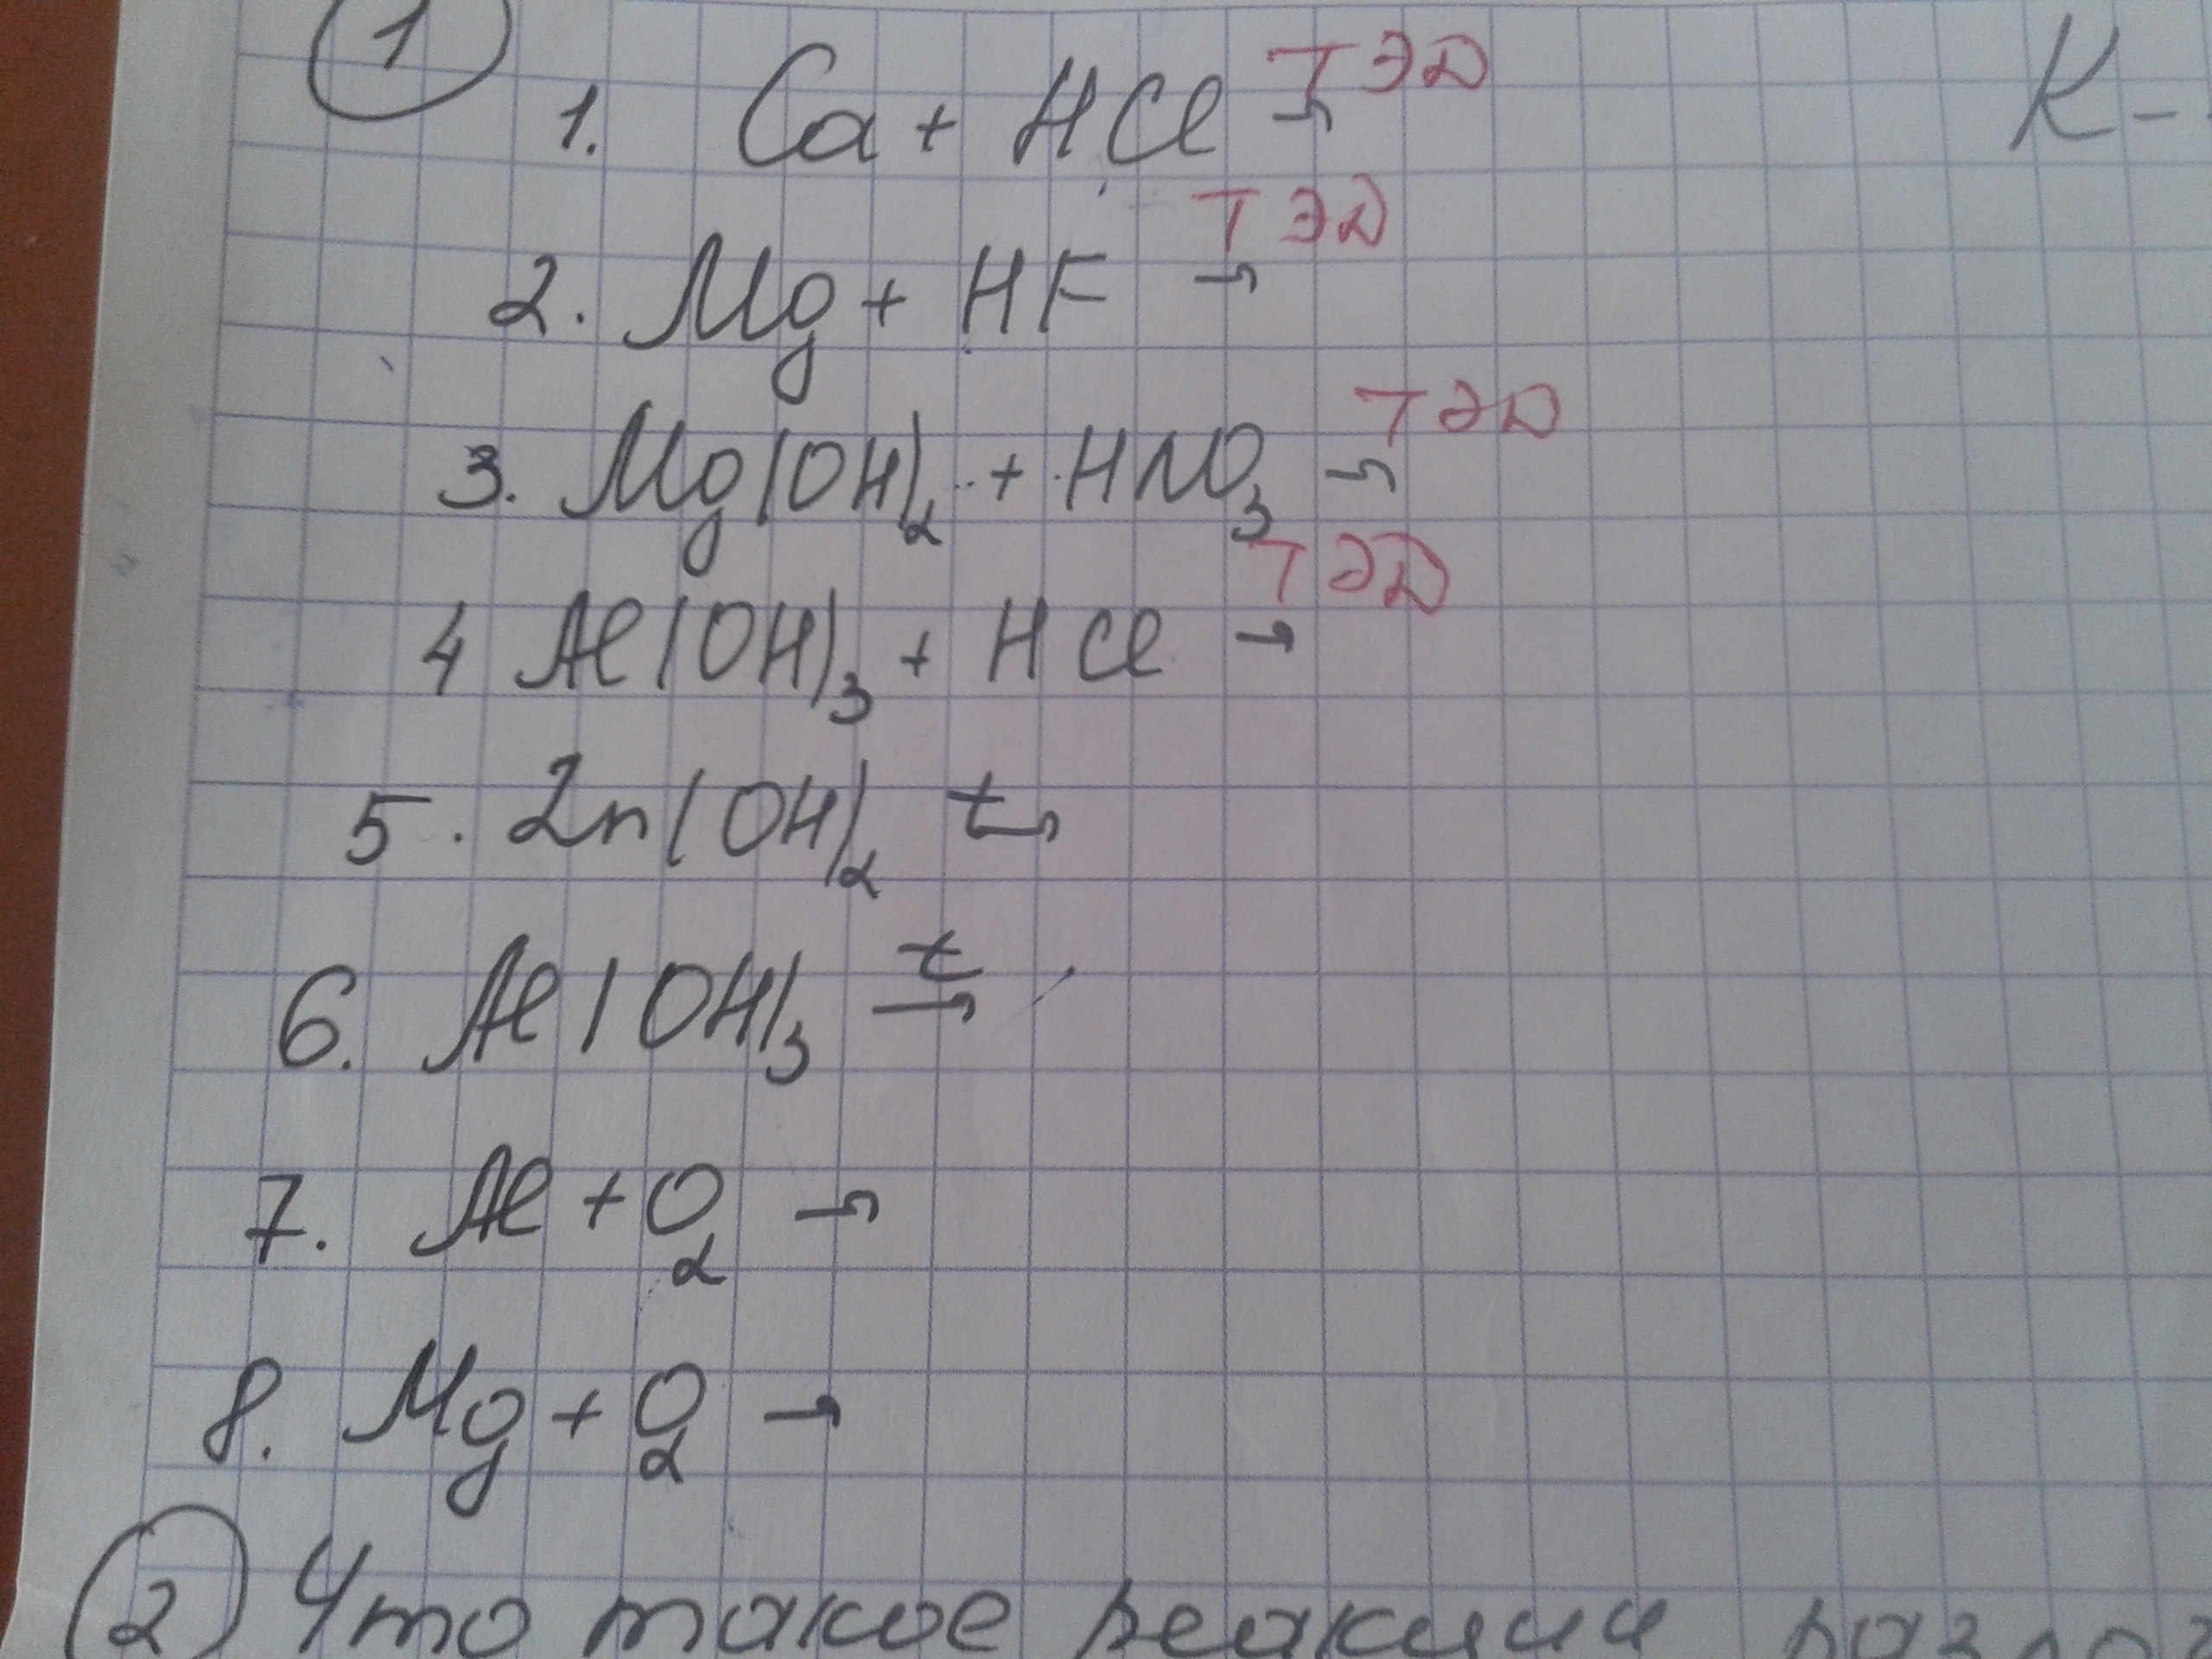 1
1. Ca + HCl → ТЭД
К-
2. Mg + HF → ТЭД
3. Mg(OH)₂ + HNO₃ → ТЭД
4 Al(OH)₃ + HCl → ТЭД
5. Zn(OH)₂ t→
6. Al(OH)₃ t→
7. Al + O₂ →
8. Mg + O₂ →
2 Что такое реакции